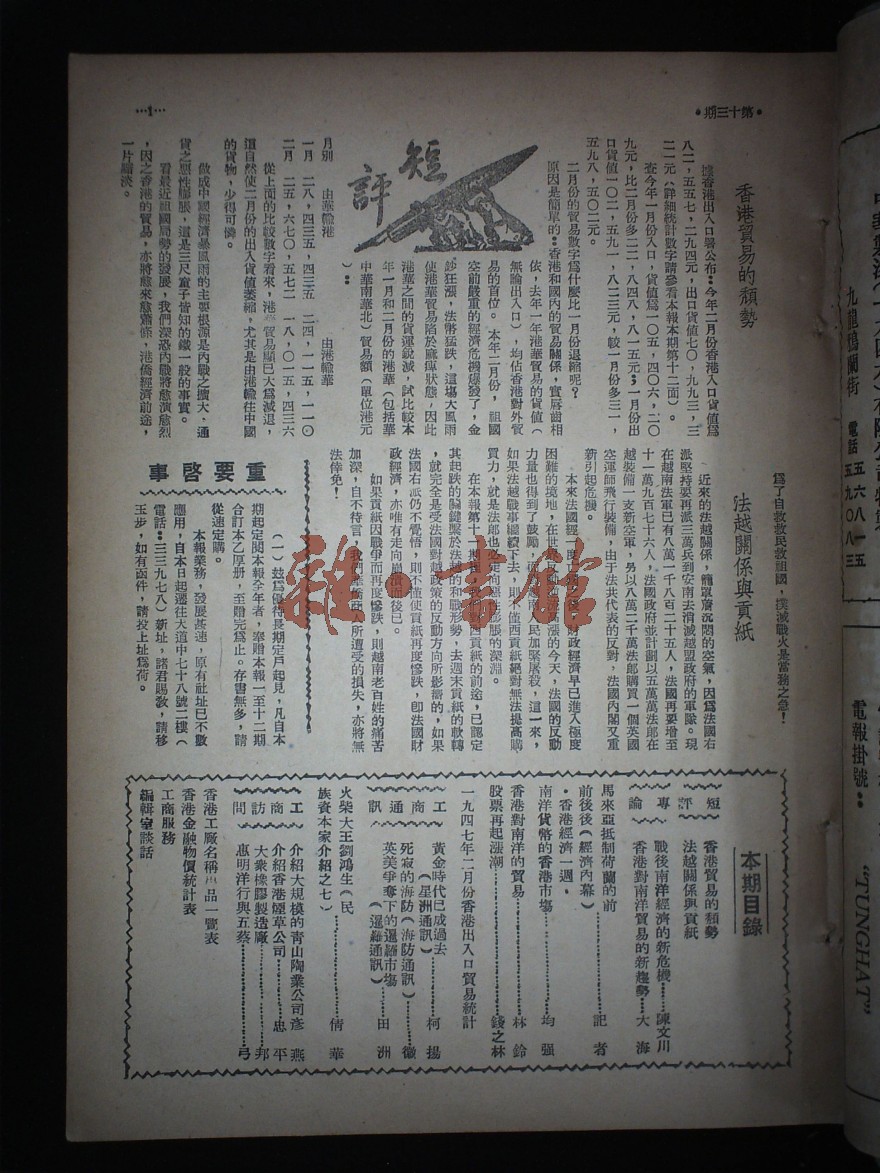 •第十三期•
…1…
短評
香港貿易的頹勢
據香港出入口署公布：今年二月份香港出入口貨值爲
八二，五五七，二九四元，出口貨值七〇，九九三，三
二一元（詳細統計數字請參看本報本期第十二面）。
查今年一月份入口，貨值爲一〇五，四〇六，二〇
九元，比二月份多二二，八四八，八一五元；一月份出
口貨值一〇二，五九一，八二三元，較一月份多三一，
五九八，五〇二元。
二月份的貿易數字爲什麼比一月份退縮呢？
原因是簡單的：香港和國內的貿易關係，實唇齒相
依，去年一年港華貿易的貨值（
無論出入口），均佔香港對外貿
易的首位。本年二月份，祖國
空前嚴重的經濟危機爆發了，金
鈔狂漲，法幣猛跌，這場大風雨
使港華貿易陷於麻痺狀態，因此
港華之間的貨運銳減，試比較本
年一月和二月份的港華（包括華
中華南華北）貿易額（單位港元
）：
月別　由華輸港　由港輸華
一月　二八，四三五，四三五　二四，一一五，一一〇
二月　二五，六七〇，五七二　一八，〇一五，四三六
從上面的比較數字看來，港華貿易顯已大爲減退，
這自然使二月份的出入貨值萎縮，尤其是由港輸往中國
的貨物，少得可憐。
做成中國經濟暴風雨的主要根源是內戰之擴大、通
貨之惡性膨脹，這是三尺童子皆知的鐵一般的事實。
看最近祖國局勢的發展，我們深恐內戰將愈演愈烈
，因之香港的貿易，亦將愈來愈蕭條，港僑經濟前途，
一片黯淡。
爲了自救救民救祖國，撲滅戰火是當務之急！
法越關係與貢紙
近來的法越關係，籠罩着沉悶的空氣，因爲法國右
派堅持要再派三萬兵到安南去消滅越盟政府的軍隊。現
在越南法軍已有八萬一千八百二十五人，法國再要增至
十一萬九百七十六人。法國政府並計劃以五萬萬法郎在
越裝備一支新空軍，另以八萬二千萬法郎購買一個英國
空運師飛行裝備，由于法共代表的反對，法國內閣又重
新引起危機。
本來法國經
財政經濟早已進入極度
困難的境地，在世
高漲的今天，法國的反動
力量也得到了鼓勵，
越南人民加緊屠殺，這一來，
如果法越戰事繼續下去，則不僅西貢紙絕對無法提高購
買力，就是法郎也
惡性膨脹的深淵。
在本報第十一期
西貢紙的前途，已認定
其起跌的關鍵繫於法越的和戰形勢，去週末貢紙的軟轉
，就完全是受法國對越政策的反動方向所影響的，如果
法國右派仍不覺悟，則不僅使貢紙再度慘跌，卽法國財
政經濟，亦唯有走向崩潰而後已。
如果貢紙因戰爭而再度慘跌，則越南老百姓的痛苦
加深，自不待言，我們華僑商人所遭受的損失，亦將無
法倖免！
重要啓事
（一）茲爲優待長期定戶起見，凡自本
期起定閱本報全年者，奉贈本報一至十二期
合訂本乙厚册，至贈完爲止。存書無多，請
從速定購。
本報業務，發展甚速，原有社址已不敷
應用，自本日起遷往大道中七十八號二樓（
電話：三三九七八）新址，諸君賜教，請移
玉步，如有函件，請投上址爲荷。
本期目錄
短評
香港貿易的頹勢
法越關係與貢紙
專論
戰後南洋經濟的新危機……陳文川
香港對南洋貿易的新趨勢……大海
馬來亞抵制荷蘭的前
前後後（經濟內幕）……記者
•香港經濟一週•
南洋貨幣的香港市場……均强
香港對南洋的貿易……林鈴
股票再起漲潮……錢之林
一九四七年二月份香港出入口貿易統計
工商通訊
黃金時代已成過去
（星洲通訊）……柯揚
死寂的海防（海防通訊）……徽
英美爭奪下的暹羅市場
（暹羅通訊）……田洲
火柴大王劉鴻生（民
族資本家介紹之七）……倩華
工商訪問
介紹大規模的靑山陶業公司彥燕
介紹香港煙草公司……忠平
大衆橡膠製造廠……邦
惠明洋行與五蔡……弓
香港工廠名稱出品一覽表
香港金融物價統計表
工商服務
編輯室談話
雜·書館
九龍鴉蘭街
電話
五六八一五
五九〇八三
電報掛號：
"TUNGHAT"